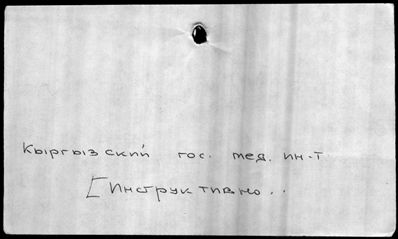 Кыргызский гос. мед. ин-т
[Инструктивно..